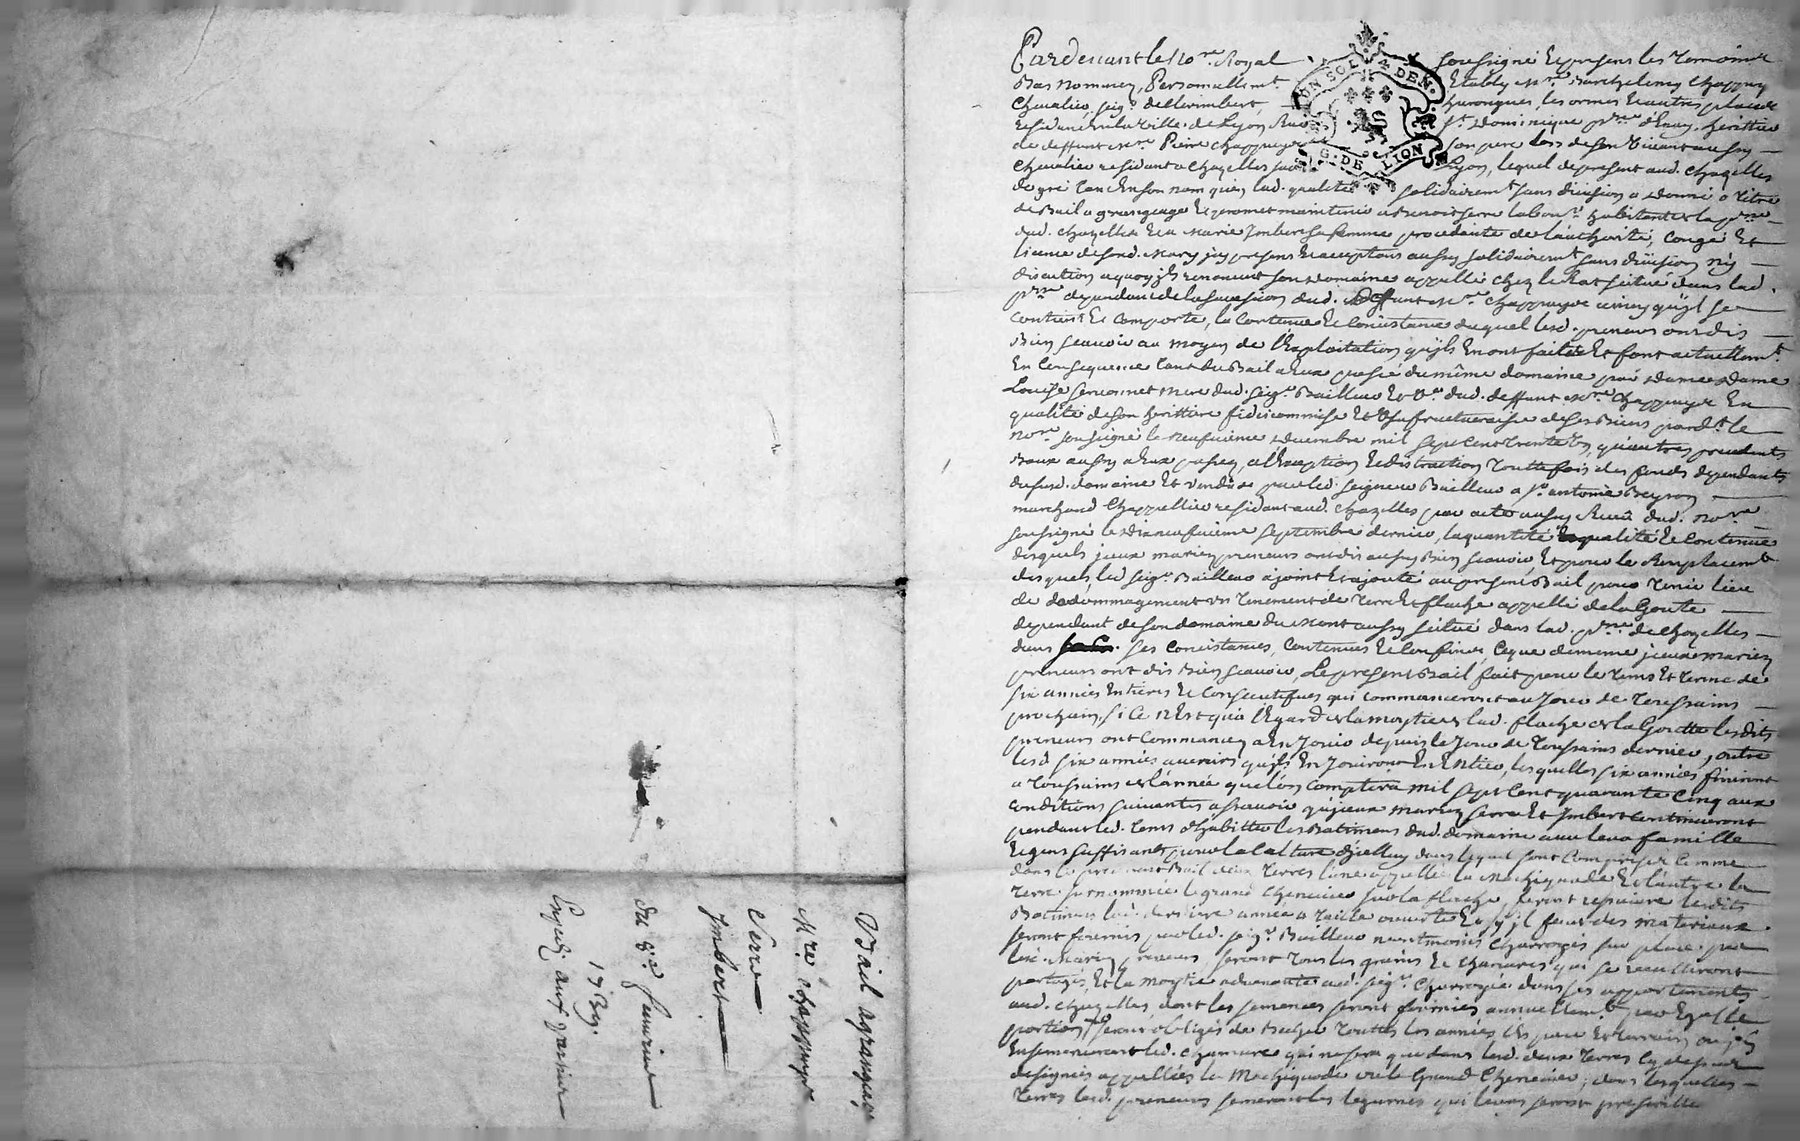 Bail a grangeage
Mre Chappuys
Serre
Imbert
du 8e fevrier
1739.
Expedié aux parties
UN SOL 4 DEN.
G. DE LION
Pardevant le nore. Royal soussigné et presens les temoins
Bas nommez, Personnellemt. Etably Mre. Barthelemy Chappuys
Chevalier, seigr. de les ormes et autres places
residant en la ville de Lyon, Rue St. Dominique prse d'Enay, heritier
de deffunt Mre. Pierre Chappuys son pere lors de son vivant aussy
Chevalier residant a Chazelles sur Lyon, lequel de present aud. Chazelles
de gré tant en son nom qu'en lad. qualité solidairemt. sans division a donné a titre
de Bail a grangeage et promet maintenir a Benoit serre labour. habitant la prse
dud. Chazelles et a Marie Imbert sa femme procedante de l'authorité, congé et
licence de sond. Mary icy presens et acceptans aussy solidairemt. sans division ny
discution a quoy ils renoncent son domaine appellé chez le Rat scitué dans lad.
prse dependant de la succession dud. deffunt Mre. Chappuys ainsy qu'il se
contient et comporte, la contenue et concistance duquel lesd. preneurs ont dis
Bien sçavoir au moyen de l'Exploitation qu'ils en ont faites et font actuellemt.
En consequence tant du Bail a eux passé du même domaine par Dame Dame
Louise mere dud. seigr. Bailleur et ve. dud. deffunt Mre. Chappuys En
qualité de son heritiere fideicommise et Usufructueraise de ses Biens pardt. le
nore. soussigné le neufvieme decembre mil sept cent trente six, qu'autres precedents
Baux aussy a eux passez, a l'Exception et distraction touttefois des fonds dependants
dususd. domaine et vendus par led. seigneur Bailleur a sr. antoine Beyron
marchand Chappellier residant aud. Chazelles par acte aussy Receu dud. nore.
soussigné le dixneufvieme septembre dernier, la quantité qualité et contenue
desquels iceux mariez preneurs ont dis aussy Bien sçavoir, Et pour le Remplacemt.
desquels, led. seigr. Bailleur a joint et ajouté au present Bail pour tenir lieu
de dedommagement un tenement de terre et flache appellé de la Goutte
dependant de son domaine du Mont aussy scitué dans lad. prse de Chazelles
dans ses concistances, contenues et confins, ce que de meme iceux mariez
preneurs ont dis Bien sçavoir, Le present Bail fait pour le tems et terme de
six années entieres et consecutifves qui commanceront au jour de toussains
prochain, si ce n'est qu'a l'Egard de la moytie de lad. flache de la Goutte lesdits
preneurs ont commancez a en jouir depuis le jour de toussains dernier, outre
lesd. six années avenirs qu'ils en jouiront en entier, lesquelles six années finiront
a toussains de l'année que l'on comptera mil sept cent quarante cinq aux
conditions suivantes a sçavoir qu'iceux mariez serre et Imbert continueront
pendant led. tems d'habitter les Batimens dud. domaine avec leur famille
et gens suffisants pour la culture d'icelluy dans lequel sont comprises comme
dans le precedent Bail deux terres l'une appellée la Mechiquade et l'autre la
terre surnommée le grand Chenevier sur la flache, feront repaivre lesdits
Batimens lad. derniere année a taille ouverte Et s'il faut des materiaux
seront fournis par led. seigr. Bailleur neantmoins charroyés sur place par
lesd. Mariez preneurs, seront tous les grains et chanvres qui se recuilliront
partagés, Et la moytie advenante aud. seigr. Charroyée dans ses appartements
aud. Chazelles dont les semences seront fournies annuellemt. par Egalle
portion, seront obligés de Becher touttes les années
ensemenceront led. chanvre qui ne sera que dans lesd. deux terres cy dessus
designées appellées la Mechiquade et le Grand Chenevier, dans lesquelles
terres lesd. preneurs semeront les legumes qui leurs seront